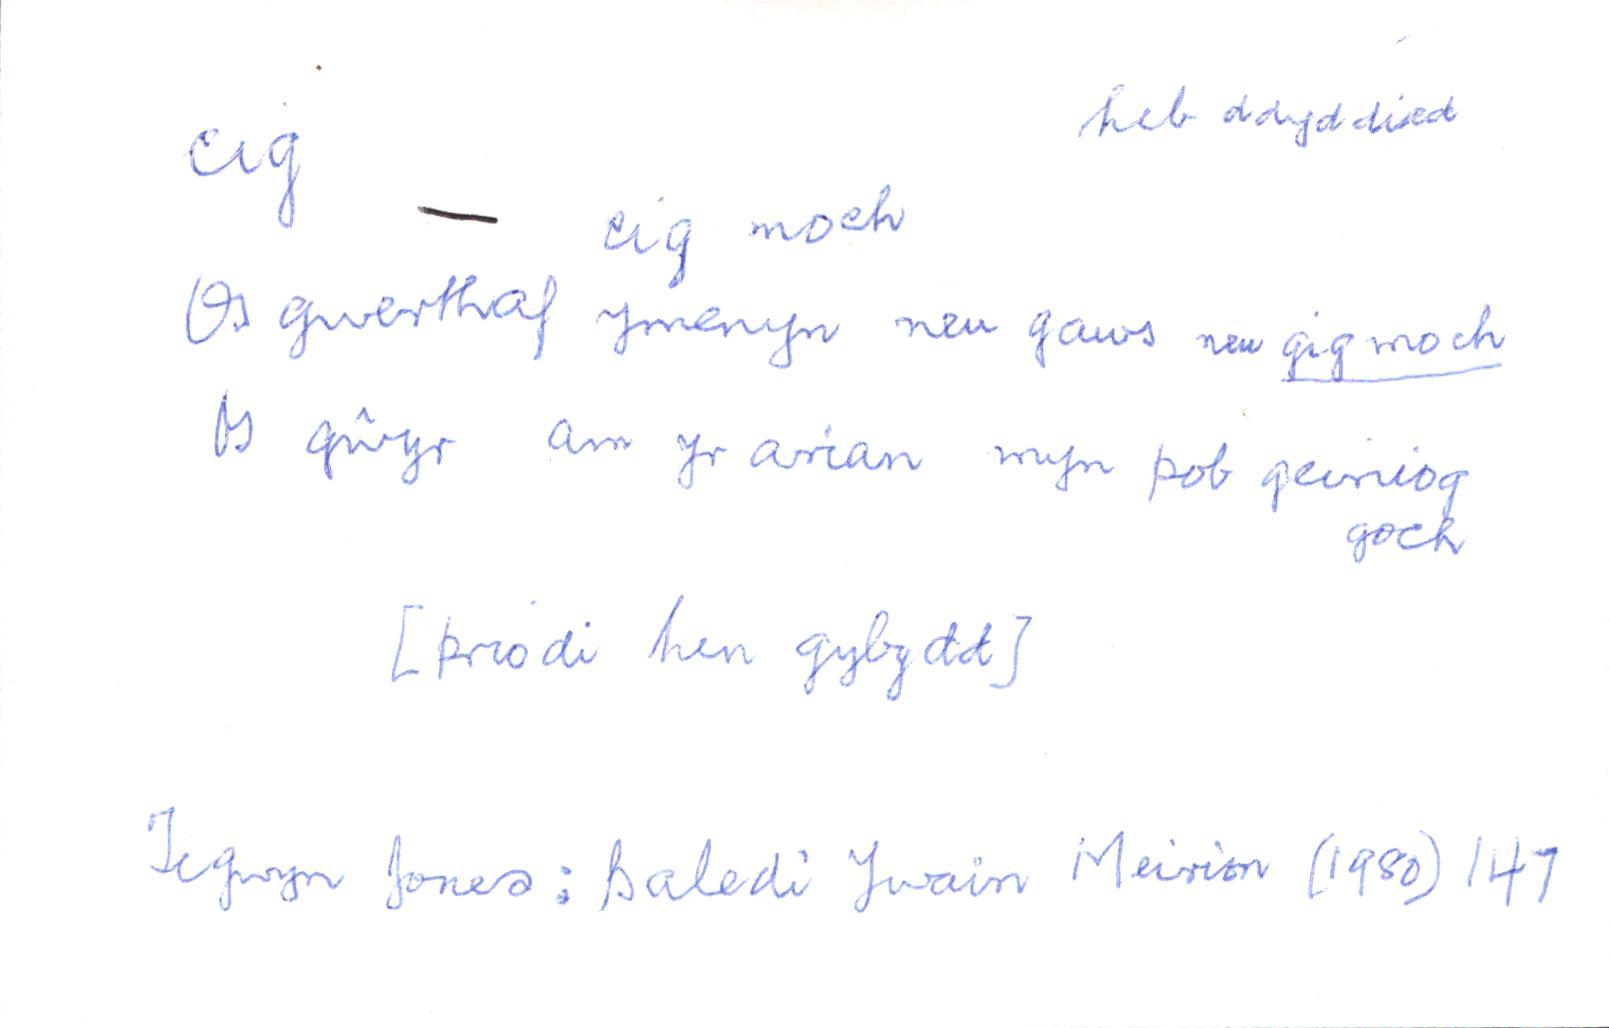 heb ddyddiad
cig
— cig moch
Os gwerthaf ymenyn neu gaws neu gig moch
Os gŵyr am yr arian myn pob ceiniog
goch
[priodi hen gybydd]
Tegwyn Jones: Baledi Ywain Meirion (1980) 147